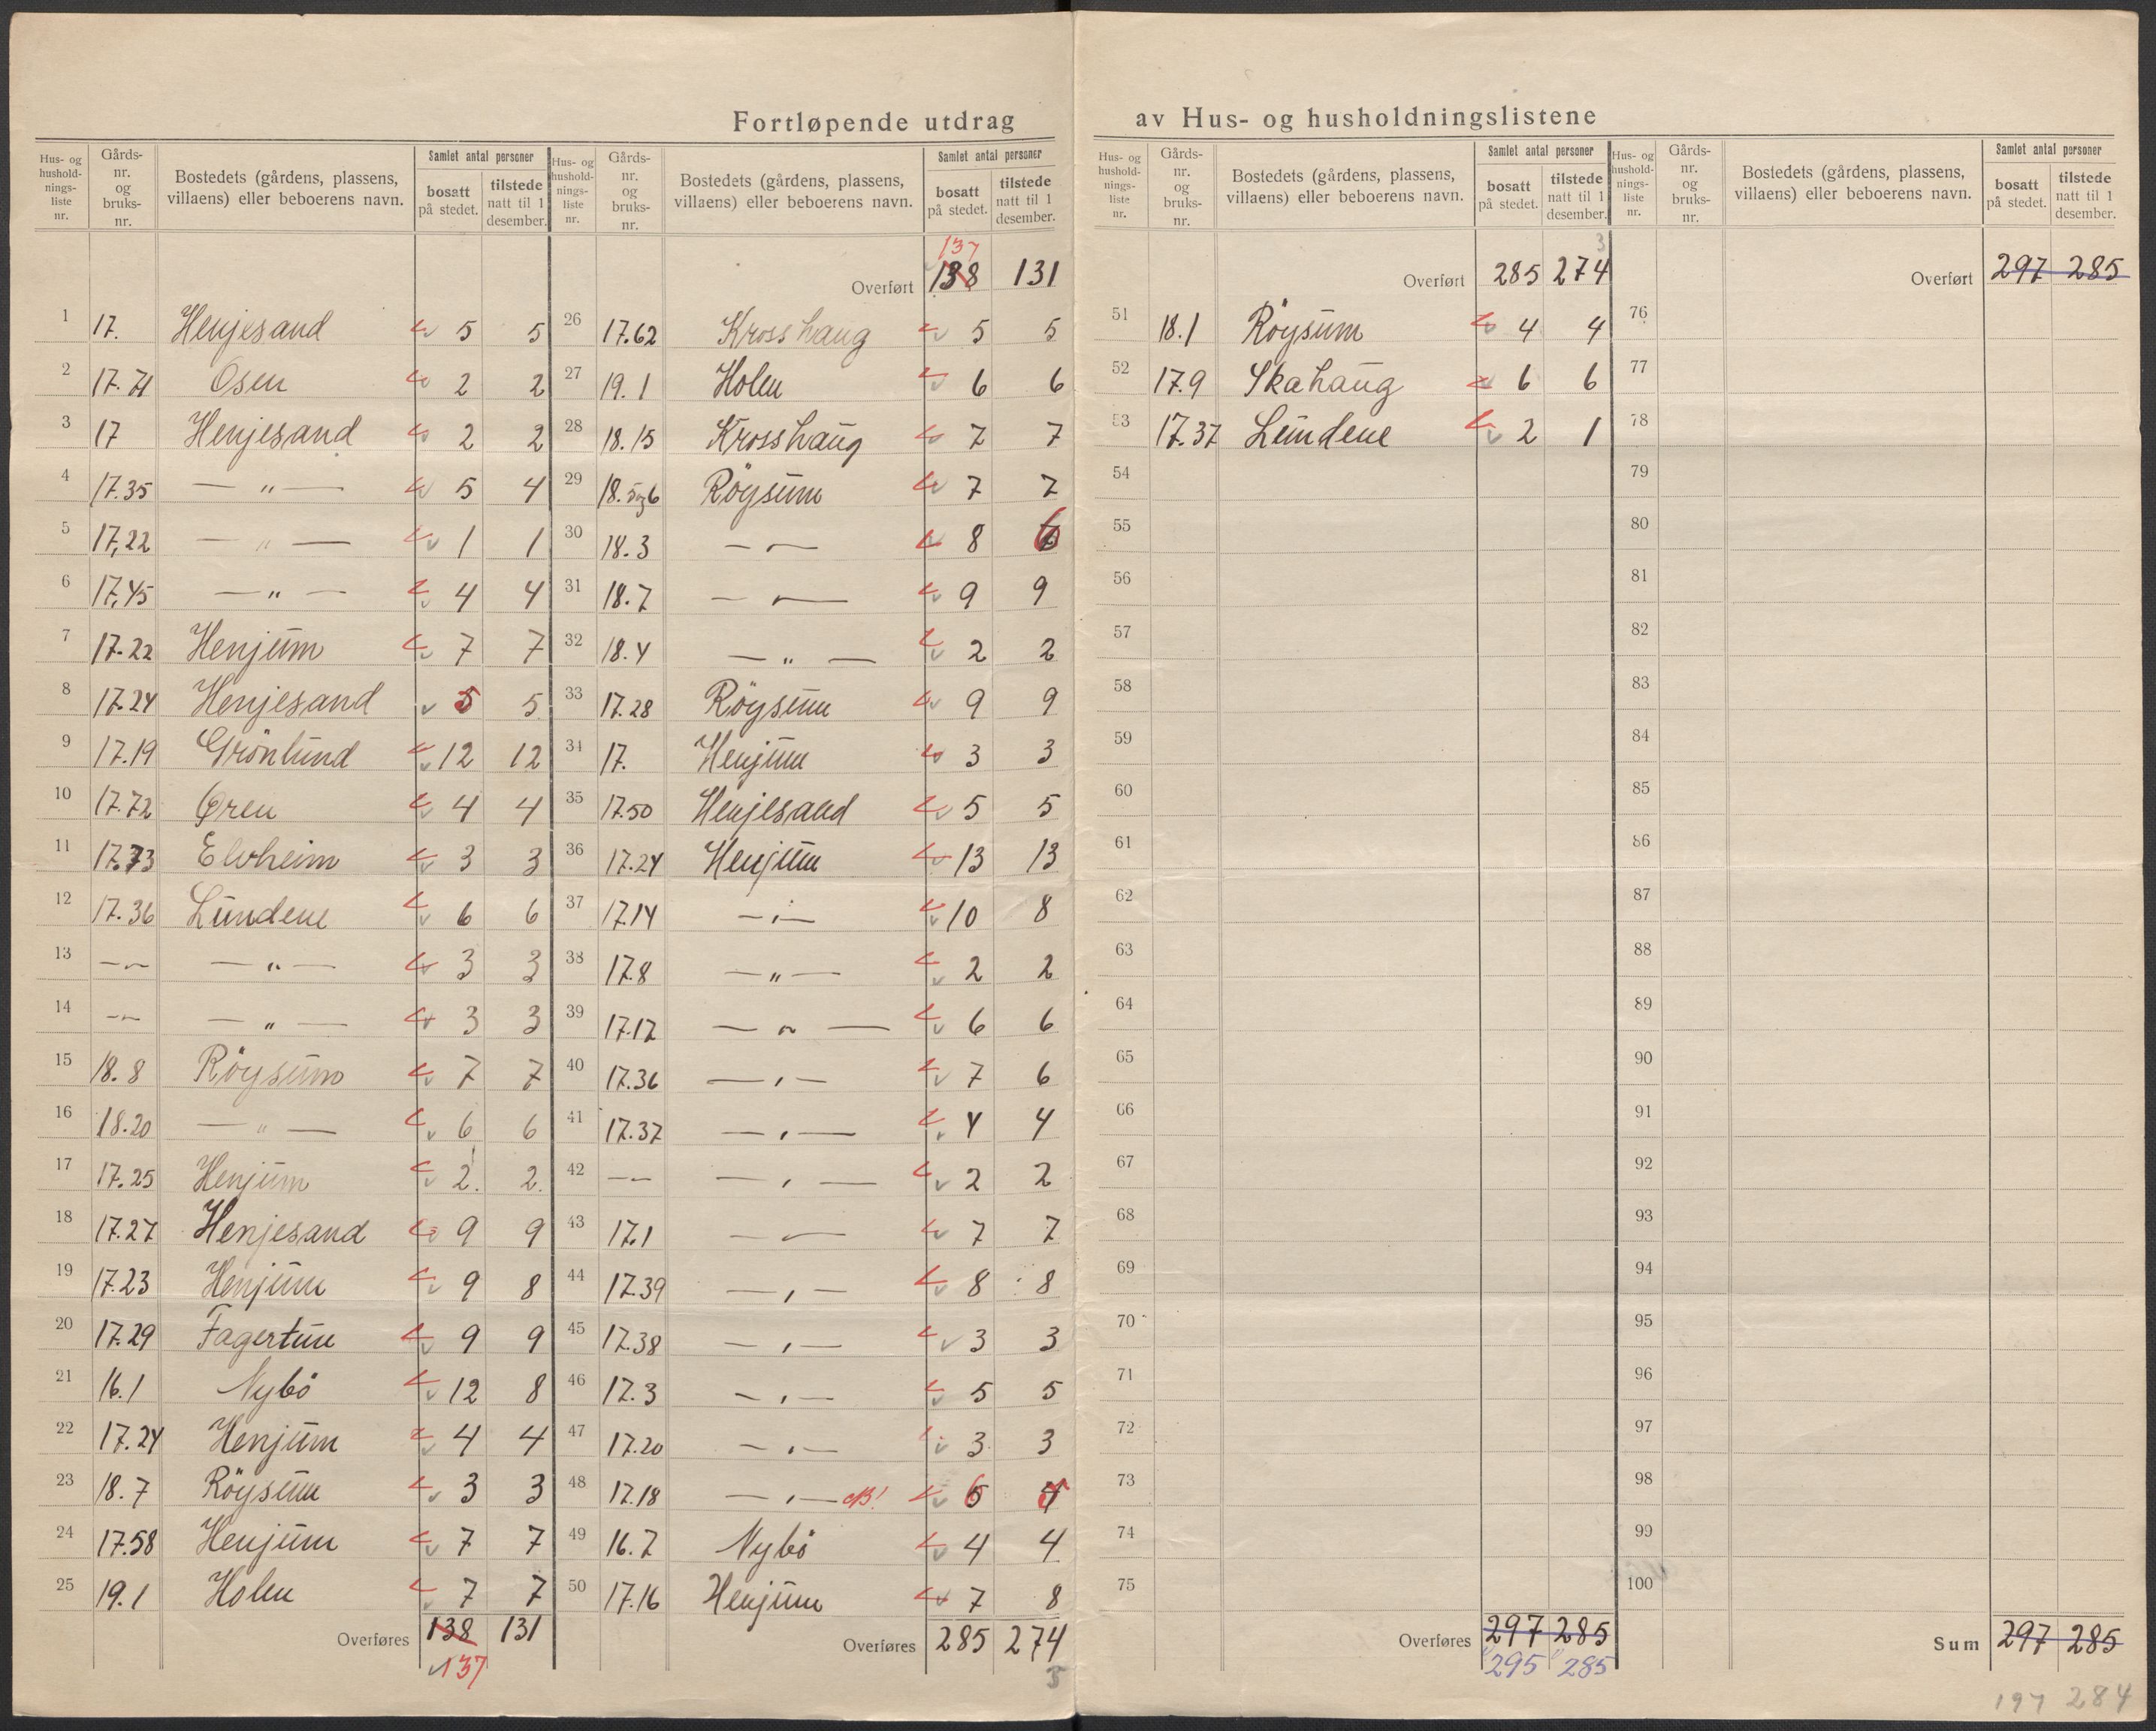 Fortløpende utdrag av Hus- og husholdningslistene
Hus- og husholdnings-liste nr. | Gårds-nr. og bruks-nr. | Bostedets (gårdens, plassens, villaens) eller beboerens navn. | Samlet antal personer | bosatt på stedet. | tilstede natt til 1 desember.
1 17. Henjesand 5 5
2 17.71 Osen 2 2
3 17 Henjesand 2 2
4 17.35 — " — 5 4
5 17,22 — " — 1 1
6 17,45 — " — 4 4
7 17.22 Henjum 7 7
8 17.24 Henjesand 5 5
9 17.19 Grönlund 12 12
10 17.72 Øren 4 4
11 17.73 Elvheim 3 3
12 17.36 Lundene 6 6
13 — " — — " — 3 3
14 — " — — " — 3 3
15 18.8 Röysum 7 7
16 18.20 — " — 6 6
17 17.25 Henjum 2. 2.
18 17.27 Henjesand 9 9
19 17.23 Henjum 9 8
20 17.29 Fagertun 9 9
21 16.1 Nybö 12 8
22 17.24 Henjum 4 4
23 18.7 Röysum 3 3
24 17.58 Henjum 7 7
25 19.1 Holen 7 7
Overføres 138 131
137
Hus- og husholdnings-liste nr. | Gårds-nr. og bruks-nr. | Bostedets (gårdens, plassens, villaens) eller beboerens navn. | Samlet antal personer | bosatt på stedet. | tilstede natt til 1 desember.
137
Overført 138 131
26 17.62 Krosshaug 5 5
27 19.1 Holen 6 6
28 18.15 Krosshaug 7 7
29 18.5og6 Röysum 7 7
30 18.3 — " — 8 6
31 18.7 — " — 9 9
32 18.4 — " — 2 2
33 17.28 Röysum 9 9
34 17. Henjum 3 3
35 17.50 Henjesand 5 5
36 17.24 Henjum 13 13
37 17.14 — " — 10 8
38 17.8 — " — 2 2
39 17.12 — " — 6 6
40 17.36 — " — 7 6
41 17.37 — " — 4 4
42 — " — — " — 2 2
43 17.1 — " — 7 7
44 17.39 — " — 8 8
45 17.38 — " — 3 3
46 17.3 — " — 5 5
47 17.20 — " — 3 3
48 17.18 — " — NB!
49 16.7 Nybö 4 4
50 17.16 Henjum 7 8
Overføres 285 274
3
Hus- og husholdnings-liste nr. | Gårds-nr. og bruks-nr. | Bostedets (gårdens, plassens, villaens) eller beboerens navn. | Samlet antal personer | bosatt på stedet. | tilstede natt til 1 desember.
3
Overført 285 274
51 18.1 Röysum 4 4
52 17.9 Skahaug 6 6
53 17.37 Lundene 2 1
54
55
56
57
58
59
60
61
62
63
64
65
66
67
68
69
70
71
72
73
74
75
Overføres 297 285
295 285
Hus- og husholdnings-liste nr. | Gårds-nr. og bruks-nr. | Bostedets (gårdens, plassens, villaens) eller beboerens navn. | Samlet antal personer | bosatt på stedet. | tilstede natt til 1 desember.
Overført 297 285
76
77
78
79
80
81
82
83
84
85
86
87
88
89
90
91
92
93
94
95
96
97
98
99
100
Sum 297 285
197 284